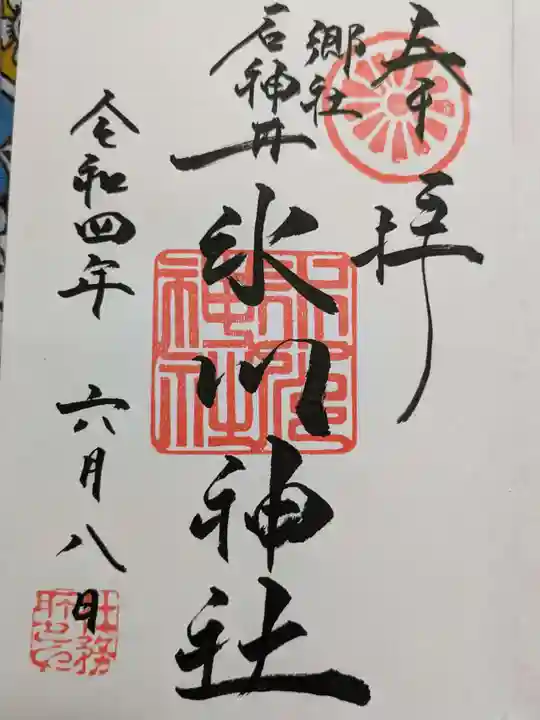 奉拝
郷社
石神井
氷川神社
令和四年 六月八日
社務所之印